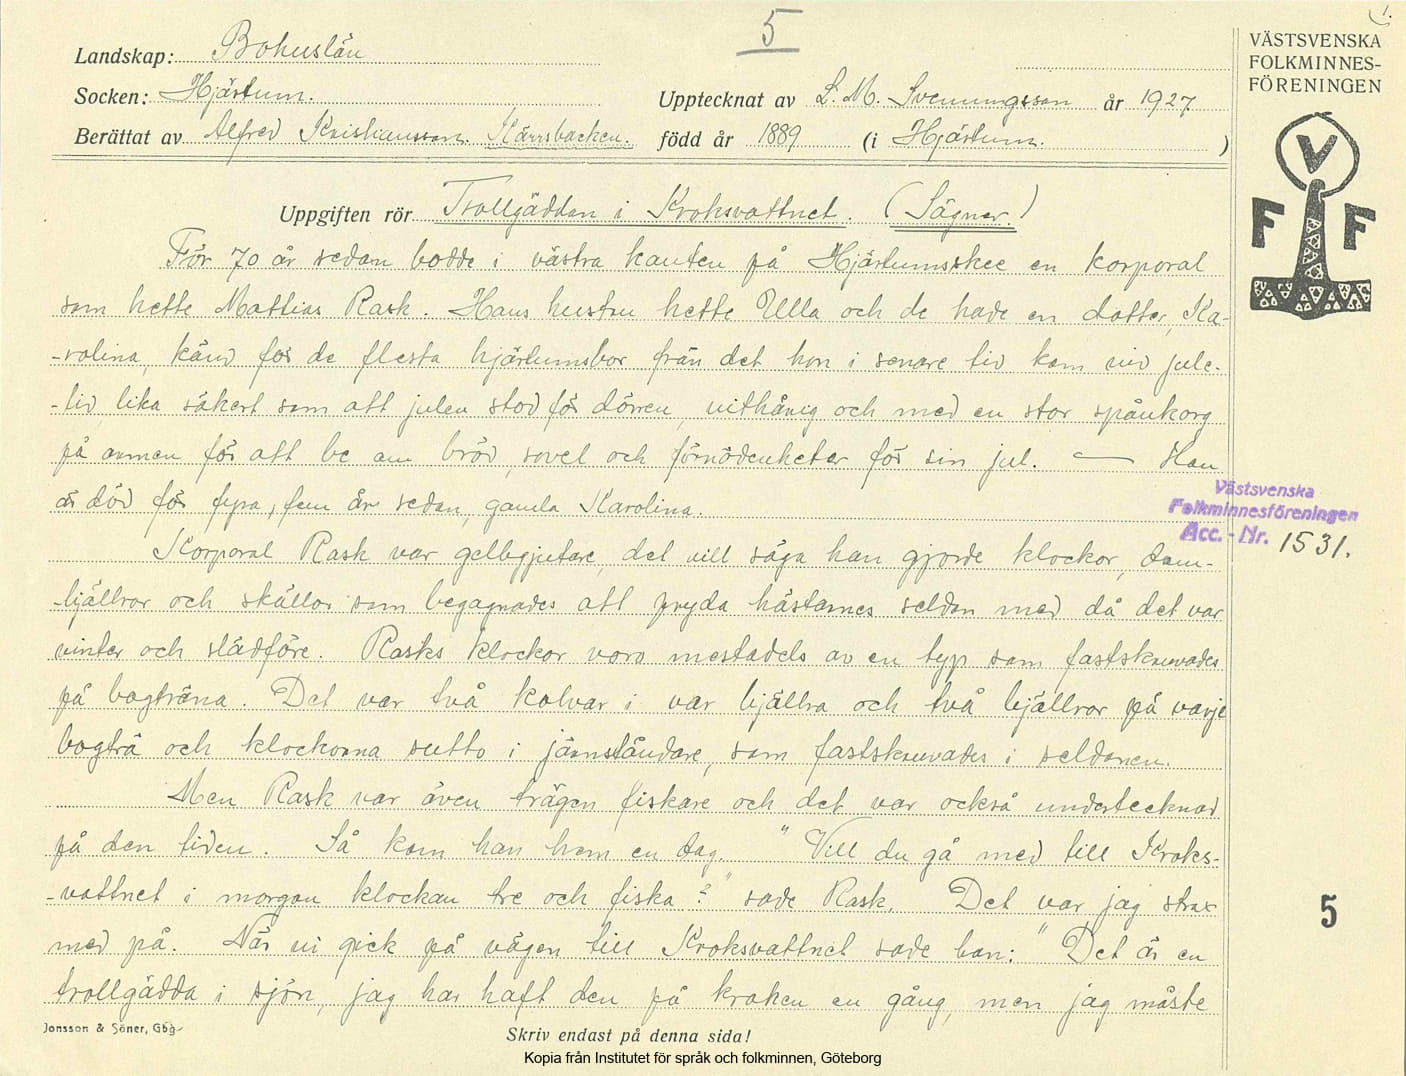 5
1.
Landskap: Bohuslän
Socken: Hjärtum.
Upptecknat av L. M. Svenungsson år 1927.
Berättat av Alfred Kristiansson. Kärrsbacken. född år 1889 (i Hjärtum. )
VÄSTSVENSKA
FOLKMINNES-
FÖRENINGEN
V
F F
Uppgiften rör Trollgäddan i Kroksvattnet. (Sägner.)
För 70 år sedan bodde i västra kanten på Hjärtumsskee en korporal
som hette Mattias Rask. Hans hustru hette Ulla och de hade en dotter, Ka-
-rolina, känd för de flesta hjärtumsbor från det hon i senare tid kom vid jule-
-tid, lika säkert som att julen stod för dörren, vithårig och med en stor spånkorg
på armen för att be om bröd, sovel och förnödenheter för sin jul. — Hon
är död för fyra, fem år sedan, gamla Karolina.
Korporal Rask var gelbgjutare, det vill säga han gjorde klockor, dom-
-bjällror och skällor som begagnades att pryda hästarnes seldon med då det var
vinter och slädföre. Rasks klockor voro mestadels av en typ som fastskruvades
på bogträna. Det var två kolvar i var bjällra och två bjällror på varje
bogträ och klockorna sutto i järnständare, som fastskruvades i seldonen.
Men Rask var även trägen fiskare och det var också undertecknad
på den tiden. Så kom han hem en dag. "Vill du gå med till Kroks-
-vattnet i morgon klockan tre och fiska?" sade Rask. Det var jag strax
med på. När vi gick på vägen till Kroksvattnet sade han: "Det är en
trollgädda i sjön, jag har haft den på kroken en gång, men jag måste
Västsvenska
Folkminnesföreningen
Acc. - Nr. 1531.
5
Jonsson & Söner, Gbg
Skriv endast på denna sida!
Kopia från Institutet för språk och folkminnen, Göteborg